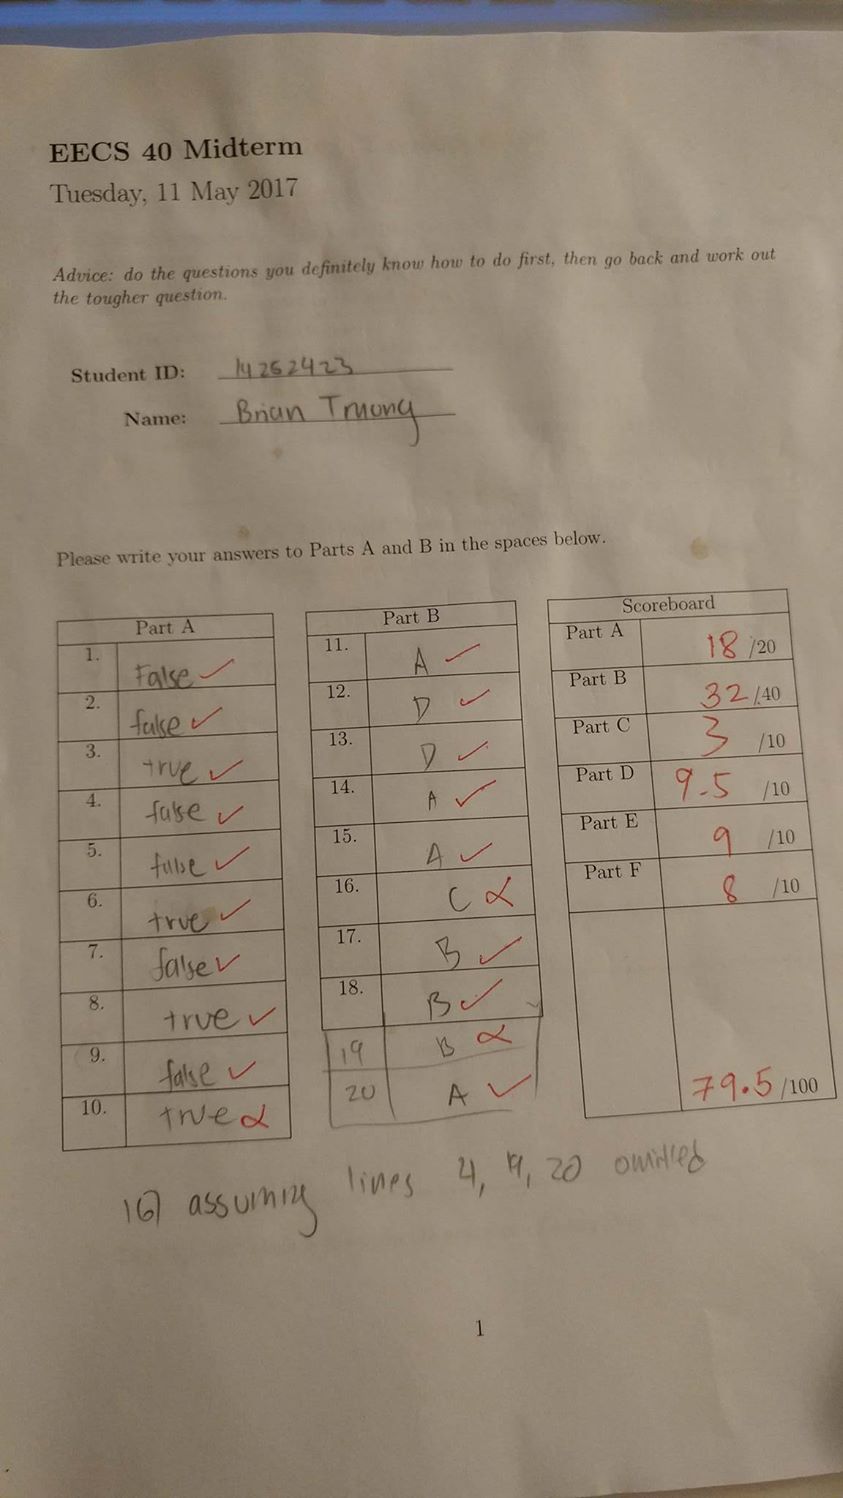 EECS 40 Midterm
Tuesday, 11 May 2017
Advice: do the questions you definitely know how to do first, then go back and work out
the tougher question.
Student ID: 14262423
Name: Brian Truong
Please write your answers to Parts A and B in the spaces below.
Part A
1. False ✓
2. false ✓
3. true ✓
4. false ✓
5. false ✓
6. true ✓
7. false ✓
8. true ✓
9. false ✓
10. true
Part B
11. A ✓
12. D ✓
13. D ✓
14. A ✓
15. A ✓
16. C
17. B ✓
18. B ✓
19 B
20 A ✓
Scoreboard
Part A 18 /20
Part B 32 /40
Part C 3 /10
Part D 9.5 /10
Part E 9 /10
Part F 8 /10
79.5 /100
16) assuming lines 4, 20 omitted
1